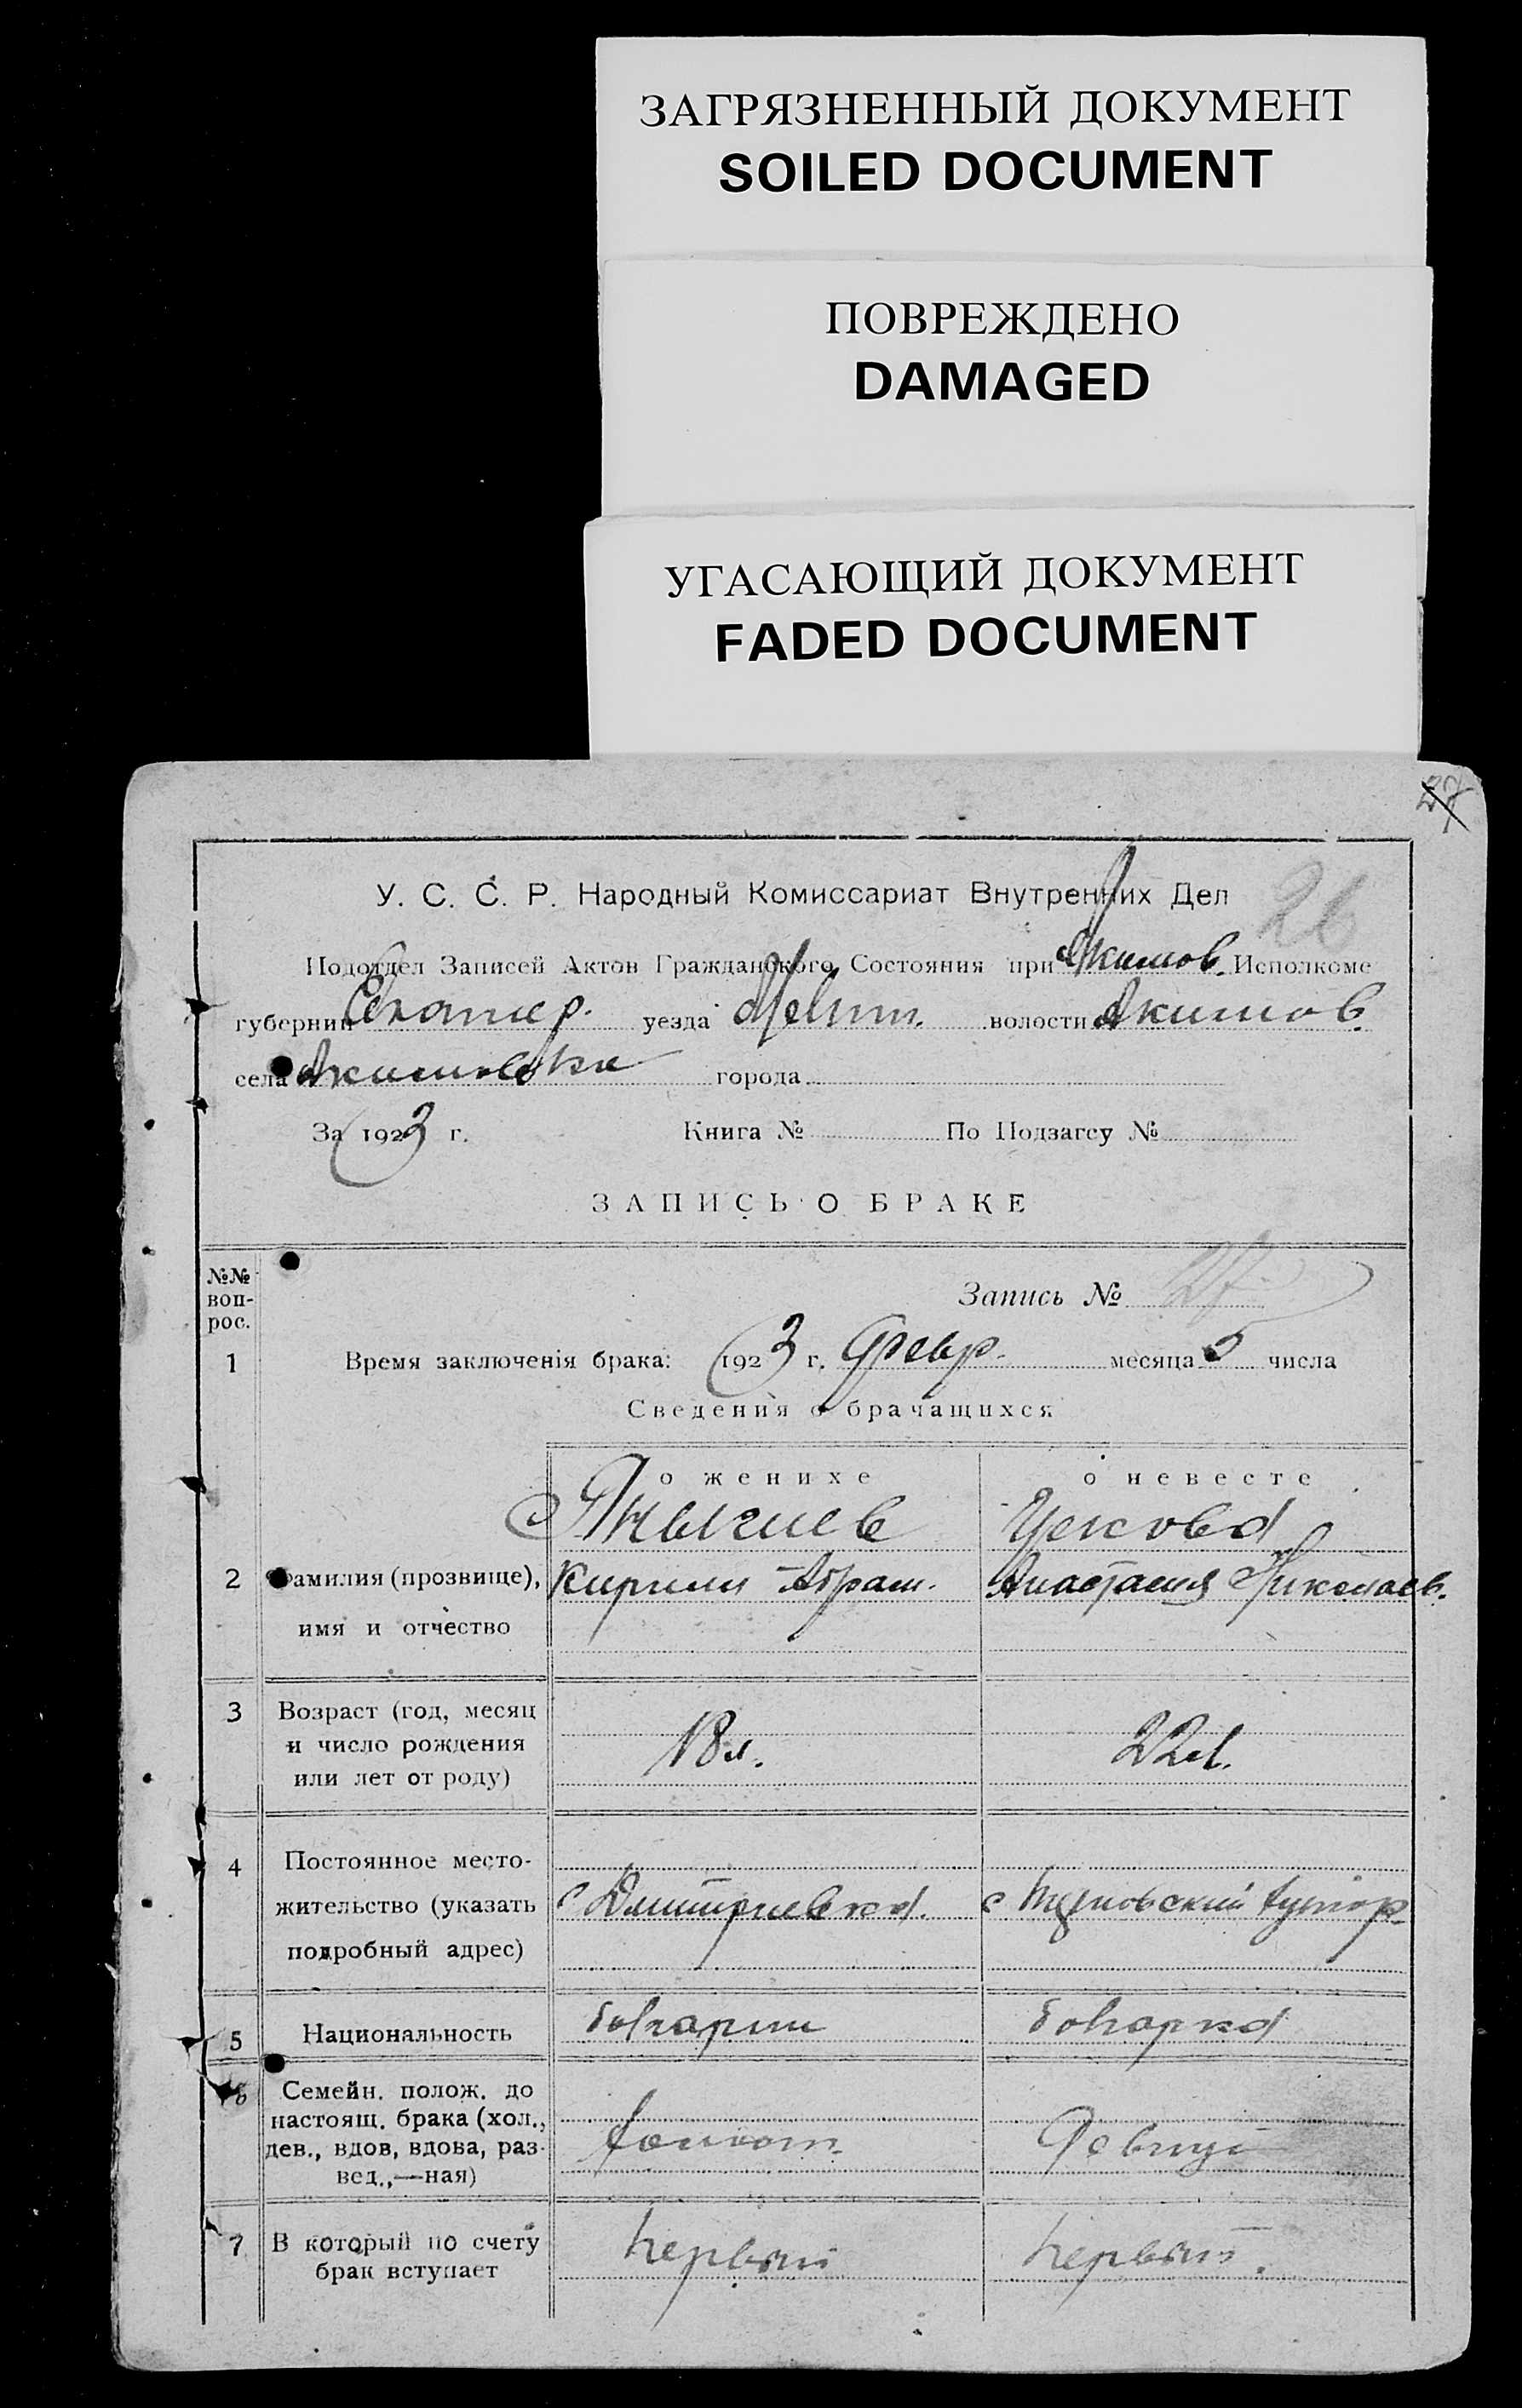 ЗАГРЯЗНЕННЫЙ ДОКУМЕНТ
SOILED DOCUMENT
ПОВРЕЖДЕНО
DAMAGED
УГАСАЮЩИЙ ДОКУМЕНТ
FADED DOCUMENT
27
26
У. С. С. Р. Народный Комиссариат Внутренних Дел
Подотдел Записей Актов Гражданского Состояния при Акимов. Исполкоме
губернии Екатер. уезда Мелит. волости Акимов.
села Акимовка города
За 1923 г. Книга № По Подзагсу №
ЗАПИСЬ О БРАКЕ
№№ воп-рос.
Запись № 27
1 Время заключенiя брака: 1923 г. Февр. месяца 5 числа
Сведения о брачащихся
о женихе о невесте
2 Фамилия (прозвище),
имя и отчество
Кирилл Абрам. Анастасия Николаев.
3 Возраст (год, месяц
и число рождения
или лет от роду)
18 л. 22 л.
4 Постоянное место-
жительство (указать
подробный адрес)
с Дмитриевка. с хутор
5 Национальность болгарин болгарка
6 Семейн. полож. до
настоящ. брака (хол.,
дев., вдов, вдова, раз-
вед.,—ная)
холост. Девица
7 В который по счету
брак вступает
первый первый.